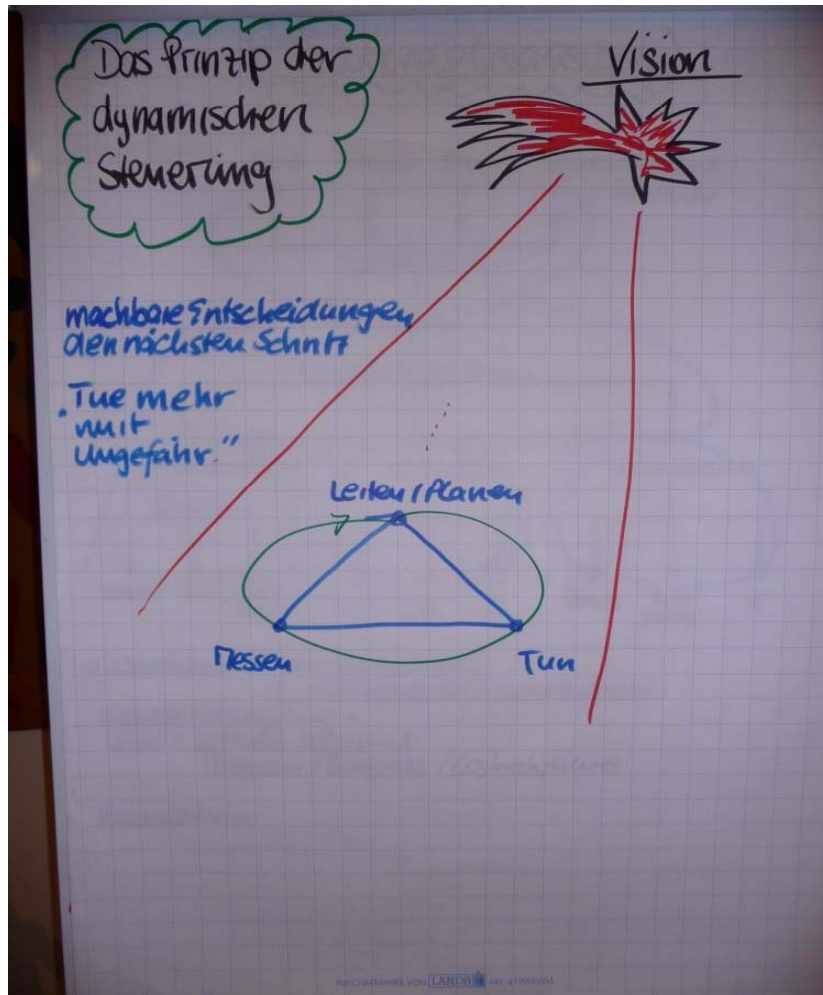 Das Prinzip der
dynamischen
Steuerung
Vision
machbare Entscheidungen
den nächsten Schritt
"Tue mehr
mit
Ungefähr."
Leiten / Planen
Messen
Tun
LANDS